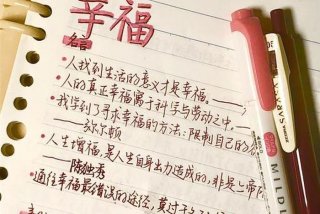 幸福
名言
人找到生活的意义才是幸福。——
人的真正幸福寓于科学与劳动之中。——
我学到了寻求幸福的方法：限制自己的
——弥尔顿
人生幸福，是人生自身出力造成的，非是上帝
——陈独秀
通往幸福最错误的途径，莫过于
MILD